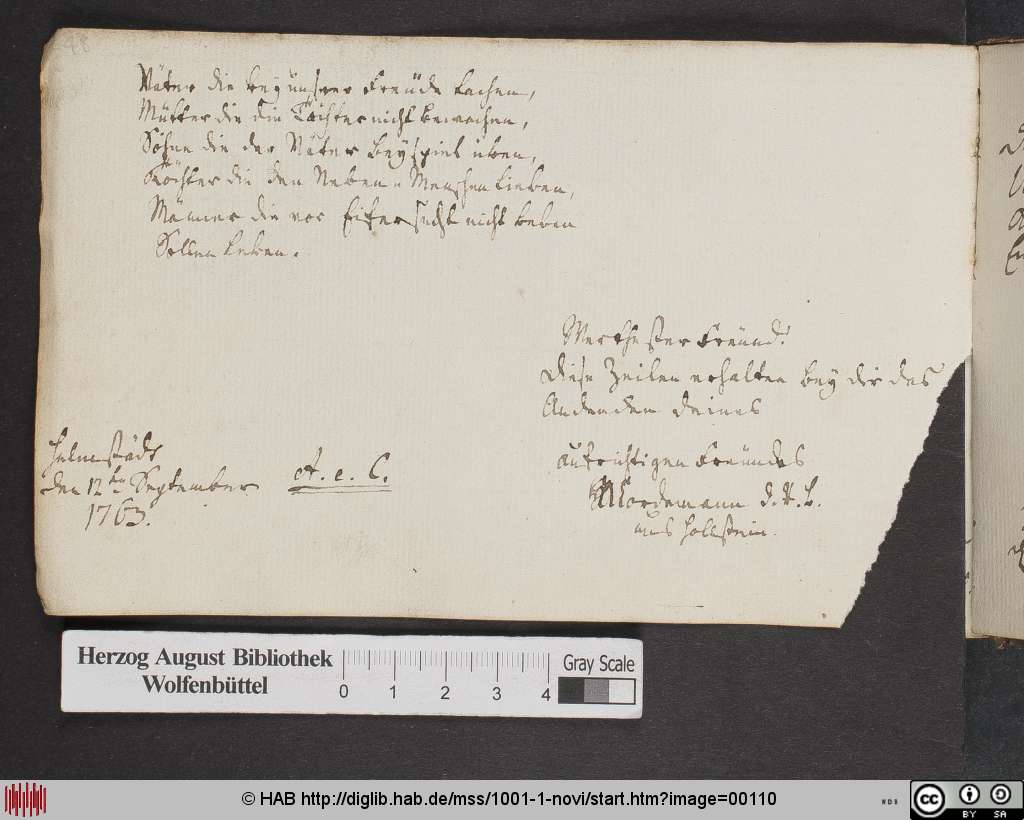 98
Väter die bey unsrer Freude lachen,
Mütter die die Töchter nicht bewachen,
Söhne die der Väter Beyspiel üben,
Töchter die den Neben-Menschen lieben,
Männer die vor Eifersucht nicht beben
Sollen leben.
Werthester Freünd!
Diese Zeilen erhalten bey dir das
Andencken deines
aufrichtigen Freündes
d. R. B.
aus Hollstein.
Helmstädt
den 12ten September
1763.
A. e. C.
Herzog August Bibliothek
Wolfenbüttel
0 1 2 3 4
Gray Scale
© HAB http://diglib.hab.de/mss/1001-1-novi/start.htm?image=00110
cc BY SA